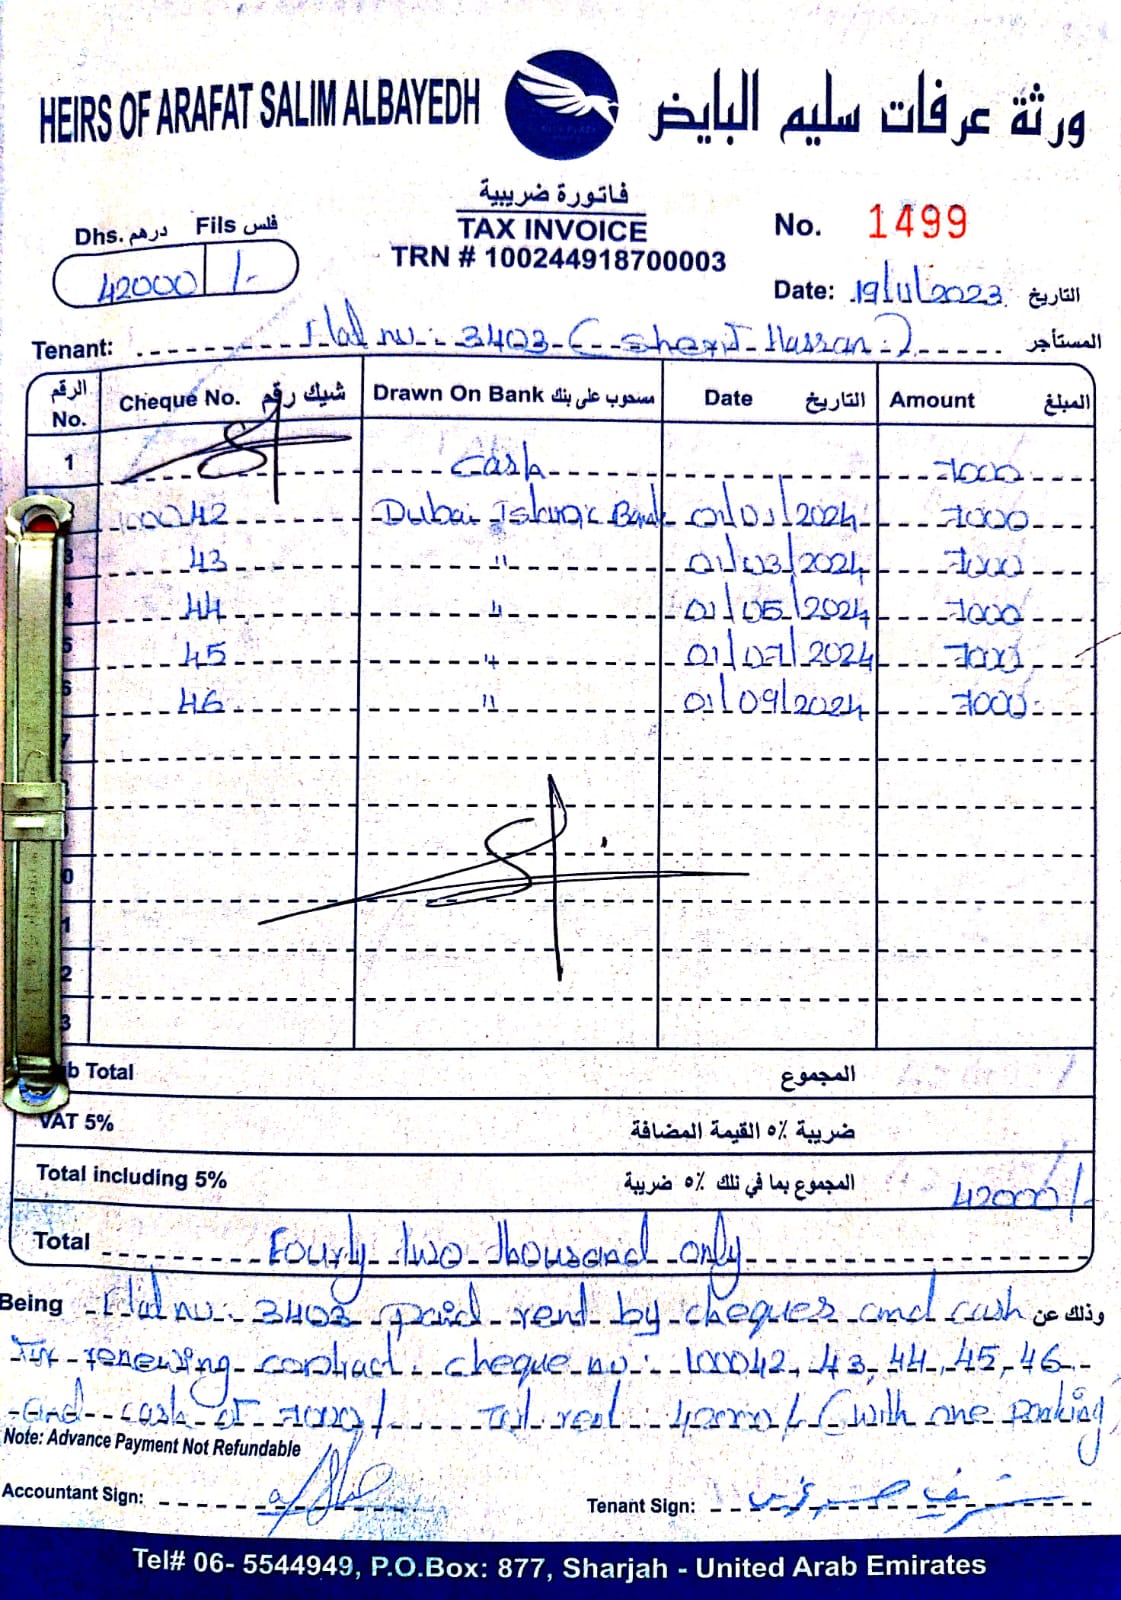 HEIRS OF ARAFAT SALIM ALBAYEDH
ورثة عرفات سليم البايض
فاتورة ضريبية
TAX INVOICE
TRN # 100244918700003
Dhs. درهم Fils فلس
42000 /-
No. 1499
Date: 19/11/2023 التاريخ
Tenant: Flat no: 3403 (Sherif Hassan) المستأجر
الرقم No. Cheque No. شيك رقم Drawn On Bank مسحوب على بنك Date التاريخ Amount المبلغ
1 Cash 7000
100042 Dubai Islamic Bank 01/01/2024 7000
3 43 " 01/03/2024 7000
4 44 " 01/05/2024 7000
5 45 " 01/07/2024 7000
6 46 " 01/09/2024 7000
7
0
1
2
3
b Total المجموع
VAT 5% ضريبة ٥٪ القيمة المضافة
Total including 5% المجموع بما في تلك ٥٪ ضريبة 42000/-
Total Fourty two thousand only
Being Flat no: 3403 paid rent by cheques and cash وذلك عن
for renewing contract. cheque no: 100042, 43, 44, 45, 46
and cash of 7000/ rent 42000/- (with one parking
Note: Advance Payment Not Refundable
Accountant Sign:
Tenant Sign: شريف حسن
Tel# 06- 5544949, P.O.Box: 877, Sharjah - United Arab Emirates